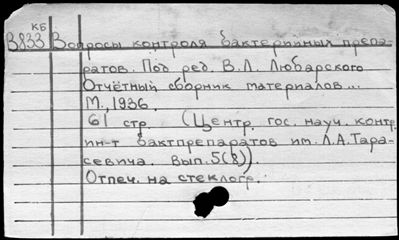 КБ
В833 Вопросы контроля бактерийных препа-
ратов. Под ред. В.Л. Любарского
Отчётный сборник материалов...
М., 1936.
61 стр (Центр. гос. науч. контр.
ин-т бактпрепаратов им. Л.А.Тара-
севича. Вып. 5(8)).
Отпеч. на стеклогр.